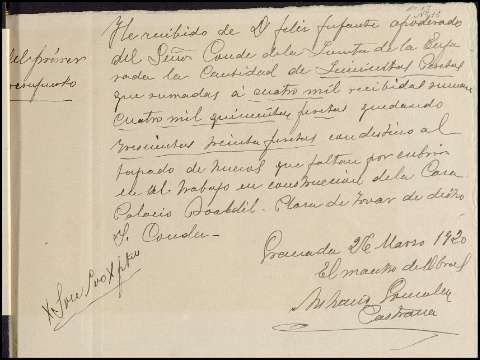 He recibido de D. Felix Infante apoderado
del Señor Conde de la Puerta de la
la Cantidad de Pesetas
que sumadas á cuatro mil recibidas suman
cuatro mil quinientas pesetas quedando
trescientas treinta pesetas con destino al
tapado de huecos que faltan por cubrir
en el trabajo en construccion de la Casa
Palacio Boabdil. Plaza de Tovar de dicho
S. Conde
Granada 26 Marzo 1920
El maestro de Obras
Gonzalez
Castrana